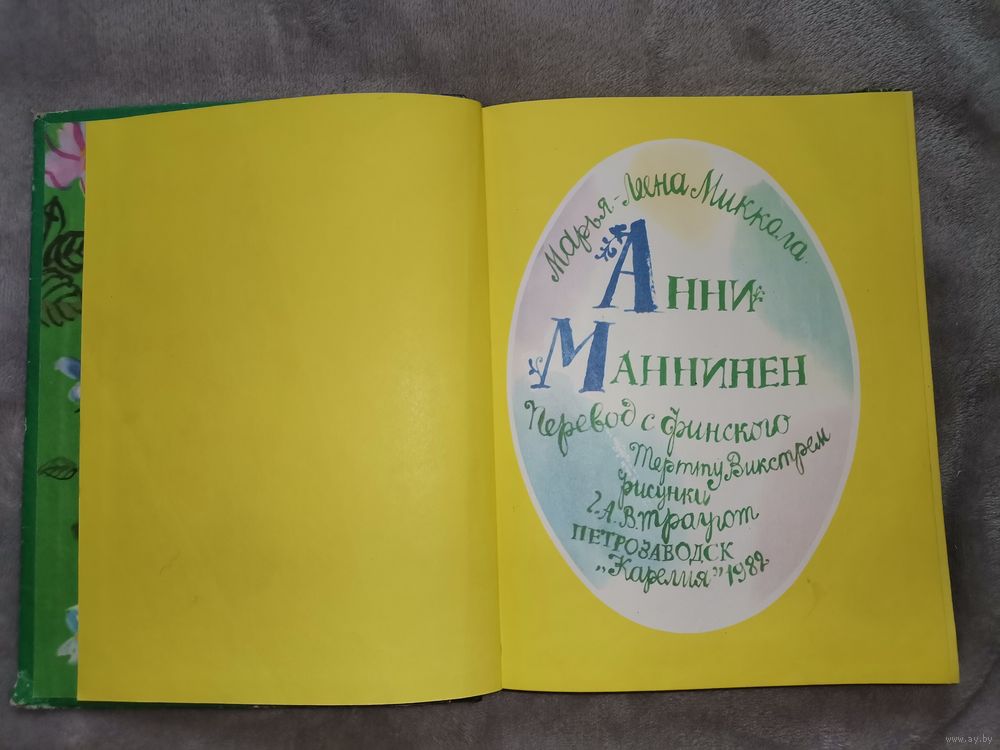 Марья-Леена Миккола
Анни
Маннинен
Перевод с финского
Терттту Викстрем
рисунки
Г.А.В.Траугот
ПЕТРОЗАВОДСК
„Карелия” 1982
www.ay.by